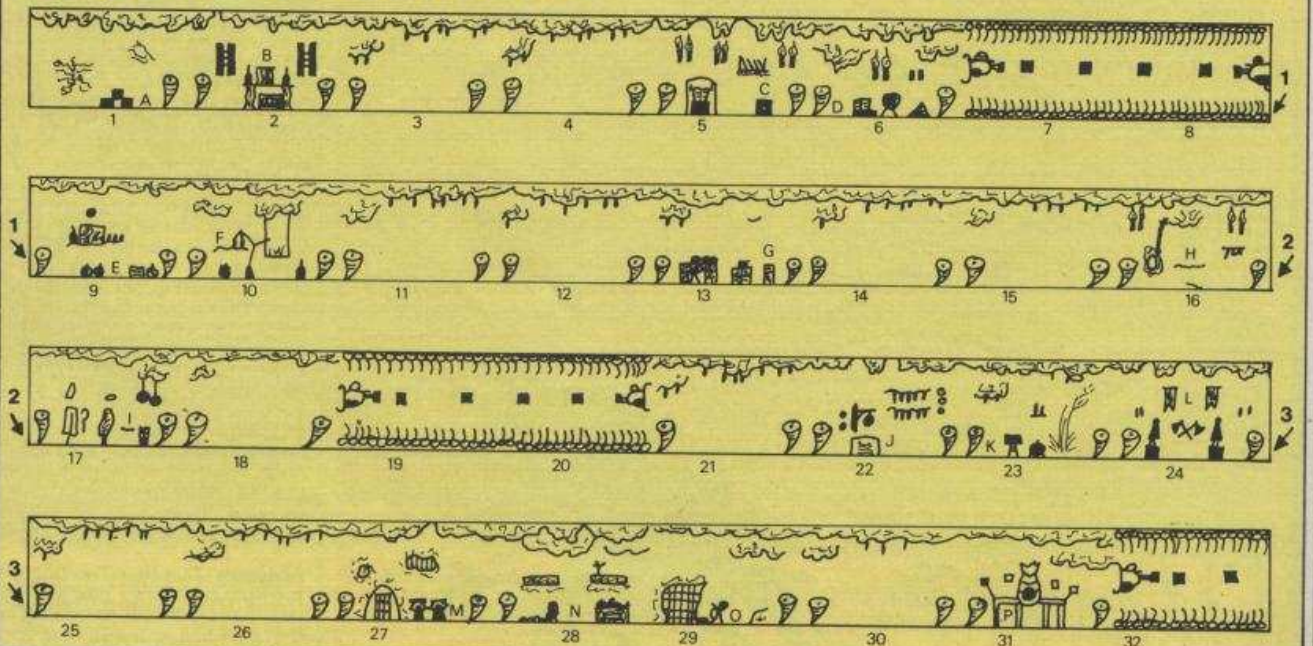 A B C D 1
1 2 3 4 5 6 7 8
1 E F G H 2
9 10 11 12 13 14 15 16
2 I J K L 3
17 18 19 20 21 22 23 24
3 M N O P
25 26 27 28 29 30 31 32